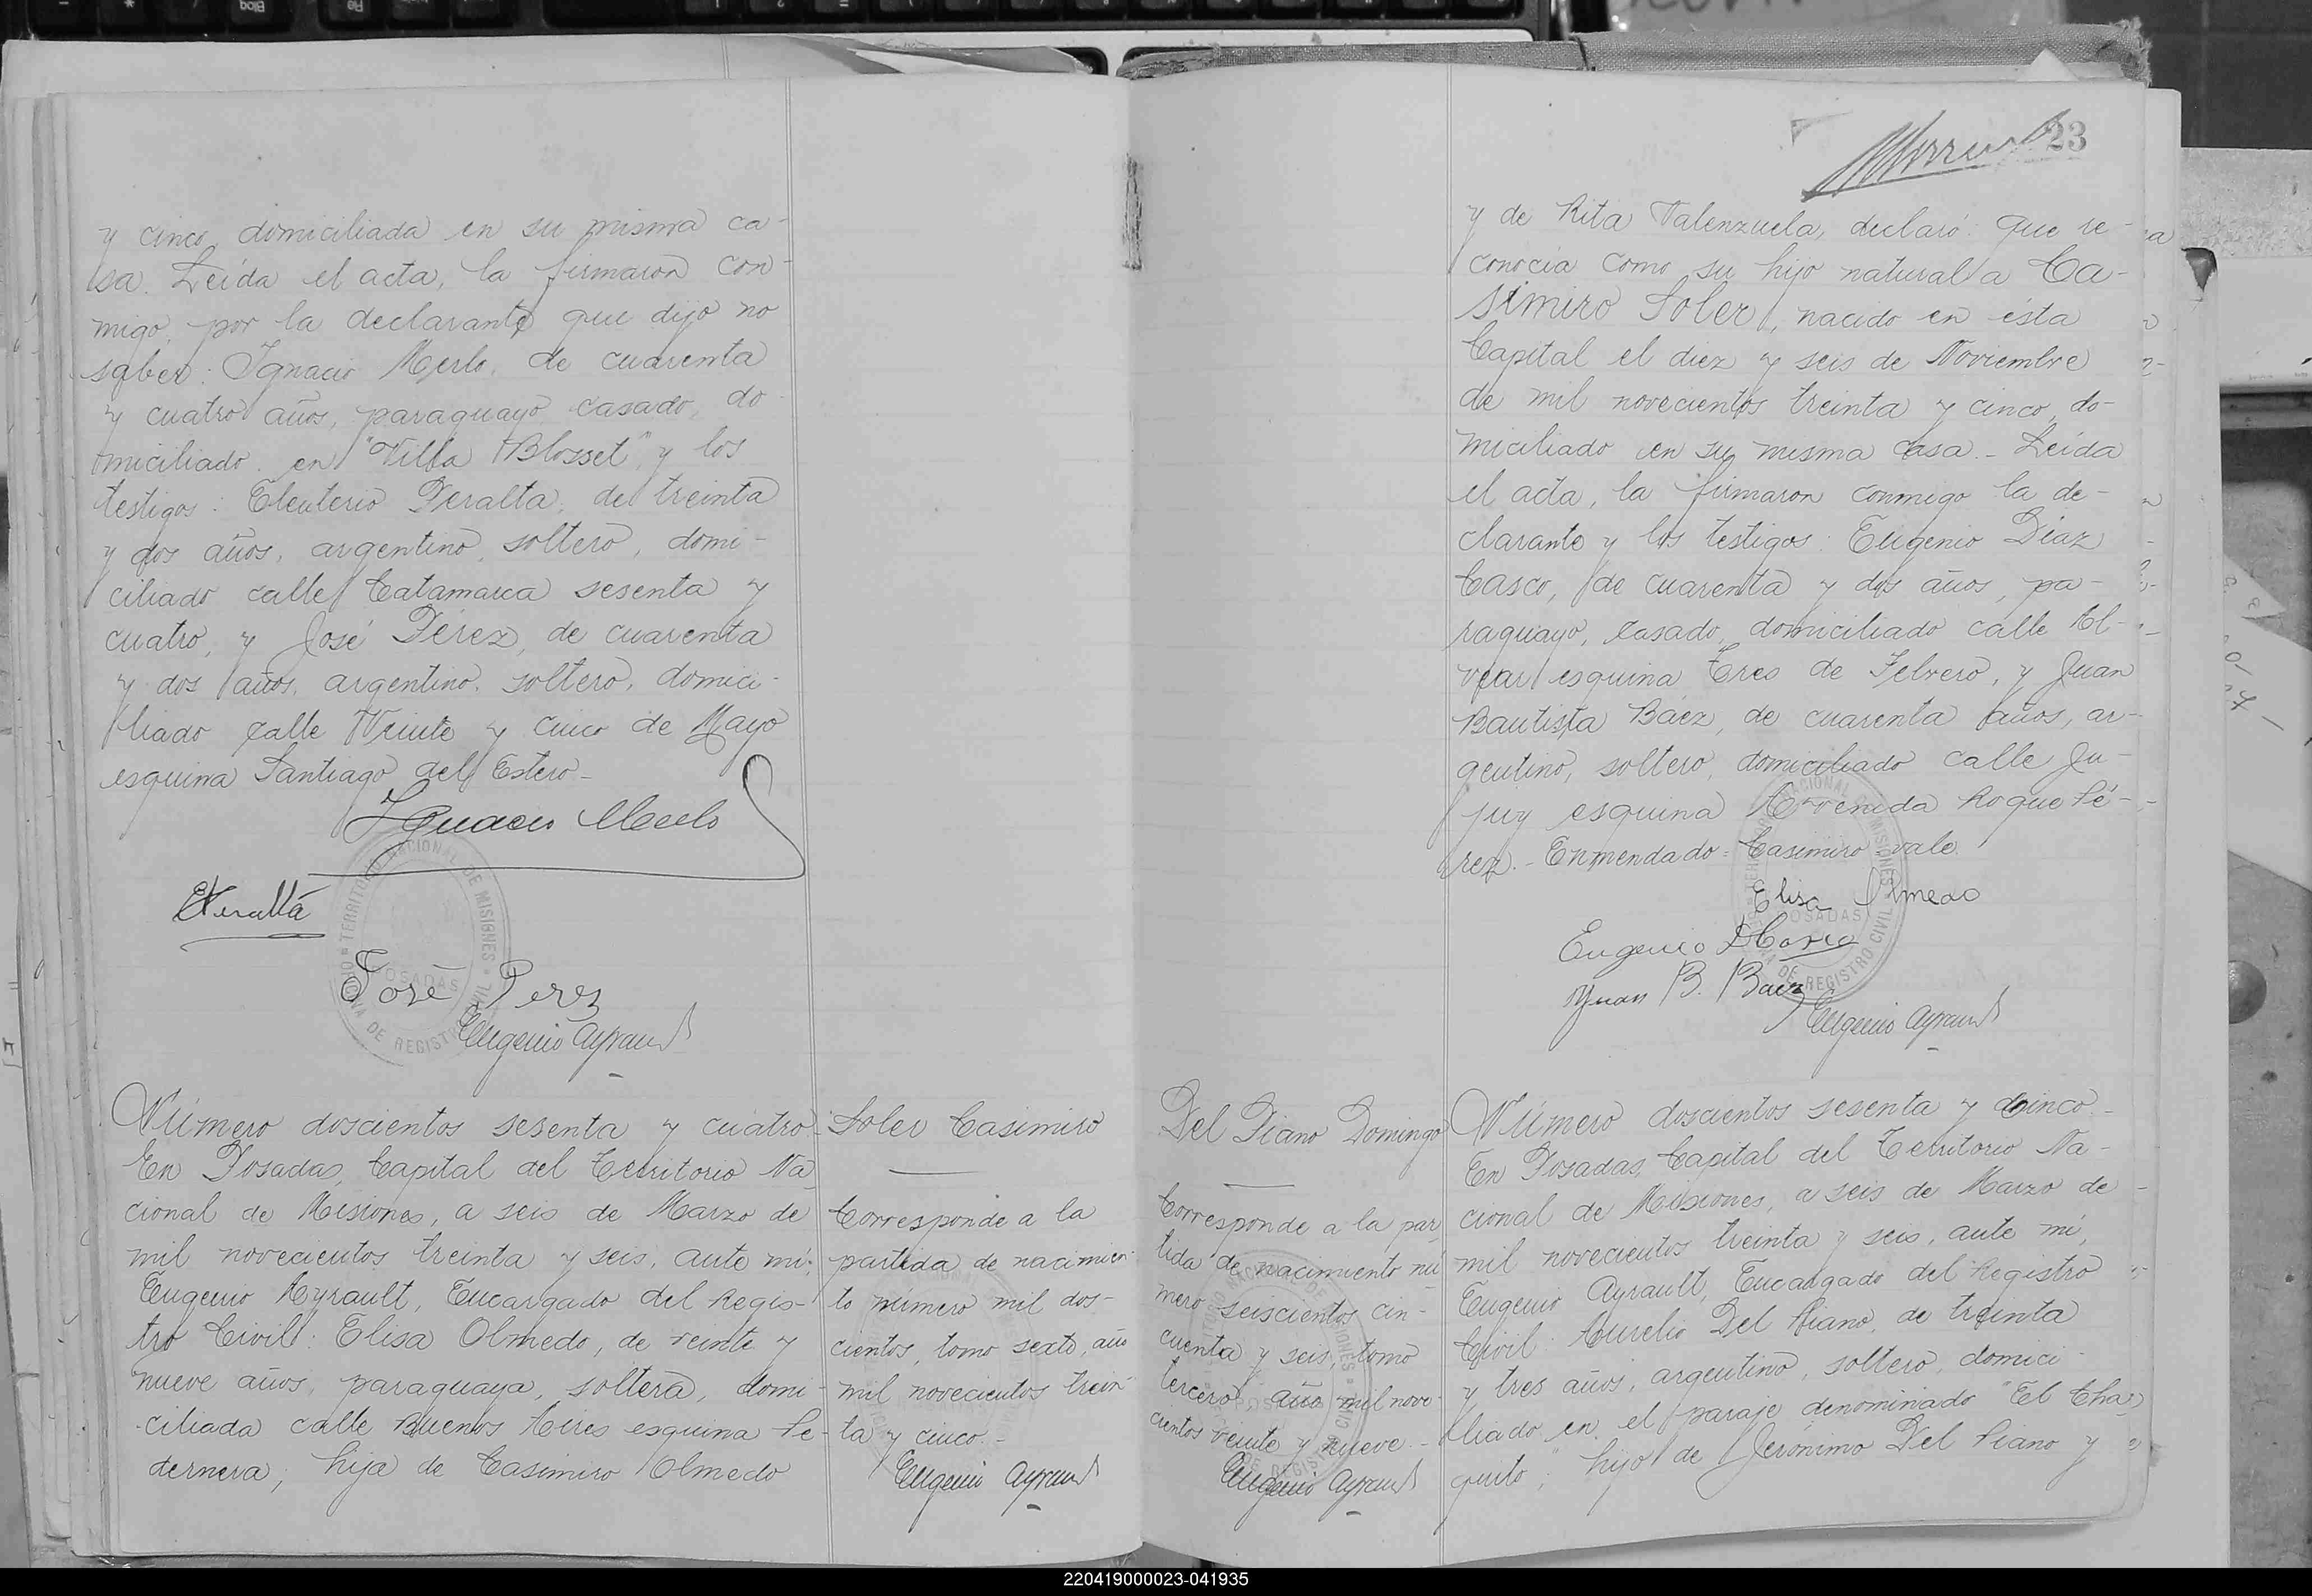 y cinco domiciliada en su misma ca-
sa. Leída el acta, la firmaron con-
migo, por la declarante que dijo no
saber: Ignacio Merlo, de cuarenta
y cuatro años, paraguayo, casado, do-
miciliado en "Villa Blosset" y los
testigos: Eleuterio Peralta, de treinta
y dos años, argentino, soltero, domi-
ciliado calle Catamarca sesenta y
cuatro, y José Pérez, de cuarenta
y dos años, argentino, soltero, domici-
liado calle Veinte y cinco de Mayo
esquina Santiago del Estero-
Ignacio Merlo
EPeralta
José Perez
Eugenio Ayrault
TERRITORIO NACIONAL DE MISIONES
POSADAS
OFICINA DE REGISTRO CIVIL
Número doscientos sesenta y cuatro
En Posadas, Capital del Territorio Na
cional de Misiones, a seis de Marzo de
mil novecientos treinta y seis, ante mí:
Eugenio Ayrault, Encargado del Regis-
tro Civil: Elisa Olmedo, de veinte y
nueve años, paraguaya, soltera, domi-
ciliada calle Buenos Aires esquina Pe-
dernera; hija de Casimiro Olmedo
Soler Casimiro
Corresponde a la
partida de nacimien-
to número mil dos-
cientos, tomo sexto, año
mil novecientos trein-
ta y cinco.-
Eugenio Ayrault
23
y de Rita Valenzuela, declaró: que re-
conocía como su hijo natural a Ca-
simiro Soler, nacido en ésta
Capital el diez y seis de Noviembre
de mil novecientos treinta y cinco, do-
miciliado en su misma casa.- Leída
el acta, la firmaron conmigo la de-
clarante y los testigos: Eugenio Diaz
Casco, de cuarenta y dos años, pa-
raguayo, casado, domiciliado calle Al-
vear esquina Tres de Febrero, y Juan
Bautista Báez, de cuarenta años, ar-
gentino, soltero, domiciliado calle Ju-
juy esquina Avenida Roque Pé-
rez.- Enmendado=Casimiro=vale.
Elisa Olmedo
Eugenio D Casco
Juan B. Baez
Eugenio Ayrault
Del Piano Domingo
Corresponde a la par
tida de nacimiento nú
mero seiscientos cin-
cuenta y seis, tomo
tercero, año mil nove-
cientos veinte y nueve.-
Eugenio Ayrault
Número doscientos sesenta y cinco.-
En Posadas, Capital del Territorio Na-
cional de Misiones, a seis de Marzo de
mil novecientos treinta y seis, ante mí,
Eugenio Ayrault, Encargado del Registro
Civil: Aurelio Del Piano, de treinta
y tres años, argentino, soltero, domici-
liado en el paraje denominado "El Cha-
quito"; hijo de Jerónimo Del Piano y
220419000023-041935